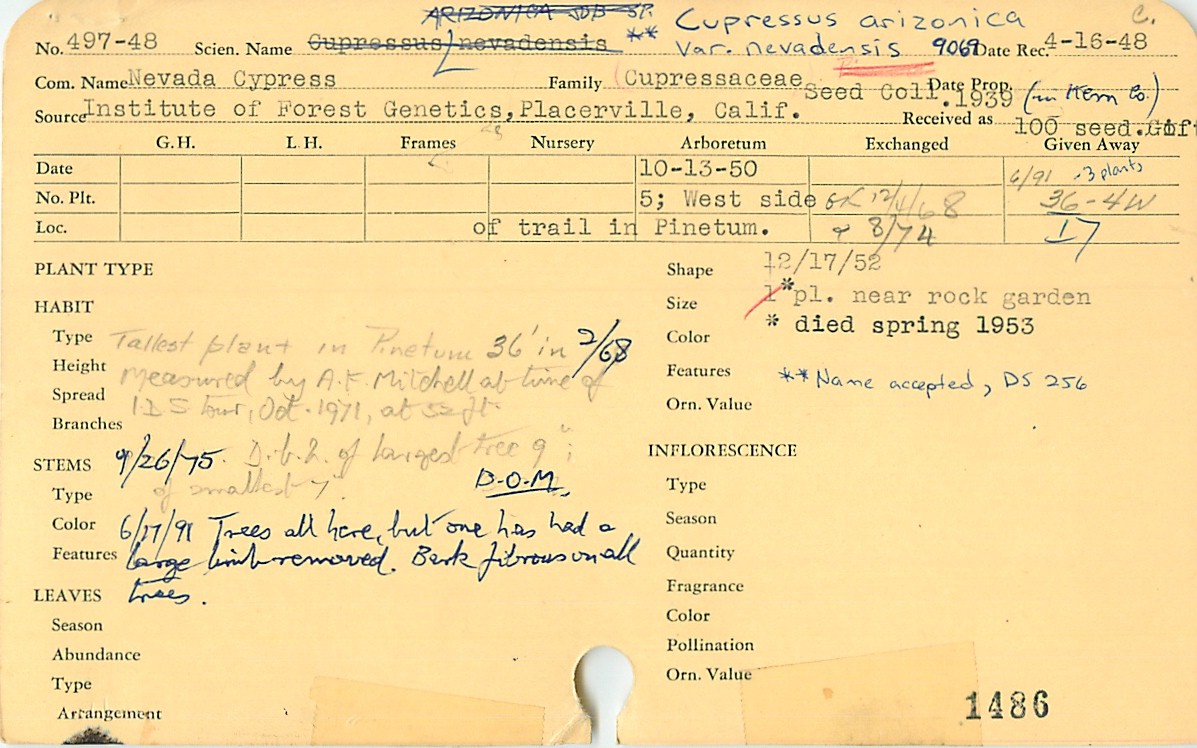 ARIZONICA SUB SP. ** Cupressus arizonica C.
No. 497-48 Scien. Name Cupressus nevadensis var. nevadensis 9069 Date Rec. 4-16-48
Com. Name Nevada Cypress Family Cupressaceae Seed Coll. 1939 Date Prop. (in Kern Co.)
Source Institute of Forest Genetics, Placerville, Calif. Received as 100 seed. Gift
G.H. L.H. Frames Nursery Arboretum Exchanged Given Away
Date 10-13-50 6/91 -3 plants
No. Plt. 5; West side OK 12/4/68 36-4W
Loc. of trail in Pinetum. 8/74 I7
PLANT TYPE
HABIT
Type Tallest plant in Pinetum 36' in 2/68
Height measured by A.F. Mitchell at time of
Spread IDS tour, Oct. 1971, at 52 ft.
Branches
STEMS 9/26/75. D.b.h. of largest tree 9";
Type of smallest 7". B.O.M.
Color 6/17/91 Trees all here, but one has had a
Features large limb removed. Bark fibrous on all
LEAVES trees.
Season
Abundance
Type
Arrangement
Shape 12/17/52
Size 1* pl. near rock garden
Color * died spring 1953
Features **Name accepted, DS 256
Orn. Value
INFLORESCENCE
Type
Season
Quantity
Fragrance
Color
Pollination
Orn. Value
1486